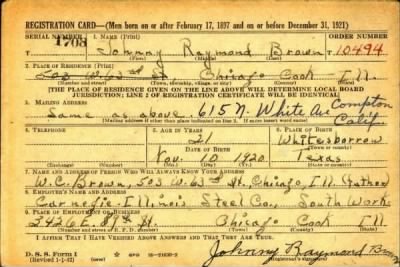 REGISTRATION CARD—(Men born on or after February 17, 1897 and on or before December 31, 1921)
SERIAL NUMBER 1. NAME (Print) ORDER NUMBER
T 1708 Johnny Raymond Brown T10494
(First) (Middle) (Last)
2. PLACE OF RESIDENCE (Print)
503 W. 63rd St Chicago Cook Ill
(Number and street) (Town, township, village, or city) (County) (State)
[THE PLACE OF RESIDENCE GIVEN ON THE LINE ABOVE WILL DETERMINE LOCAL BOARD
JURISDICTION; LINE 2 OF REGISTRATION CERTIFICATE WILL BE IDENTICAL]
3. MAILING ADDRESS
Same as above. 615 N. White Ave Compton
Calif.
4. TELEPHONE 5. AGE IN YEARS 6. PLACE OF BIRTH
21 Whitesborrow
DATE OF BIRTH
Nov. 10 1920 Texas
(Mo.) (Day) (Yr.)
7. NAME AND ADDRESS OF PERSON WHO WILL ALWAYS KNOW YOUR ADDRESS
W.C. Brown, 503 W. 63rd St, Chicago, Ill. Father
8. EMPLOYER'S NAME AND ADDRESS
Carnegie. Illinois Steel Co., South Works
9. PLACE OF EMPLOYMENT OR BUSINESS
3426 E. 89th St. Chicago Cook Ill
(Number and street or R. F. D. number) (Town) (County) (State)
I AFFIRM THAT I HAVE VERIFIED ABOVE ANSWERS AND THAT THEY ARE TRUE.
D. S. S. Form 1
(Revised 1-1-42) Johnny Raymond Brown
(Registrant's signature)